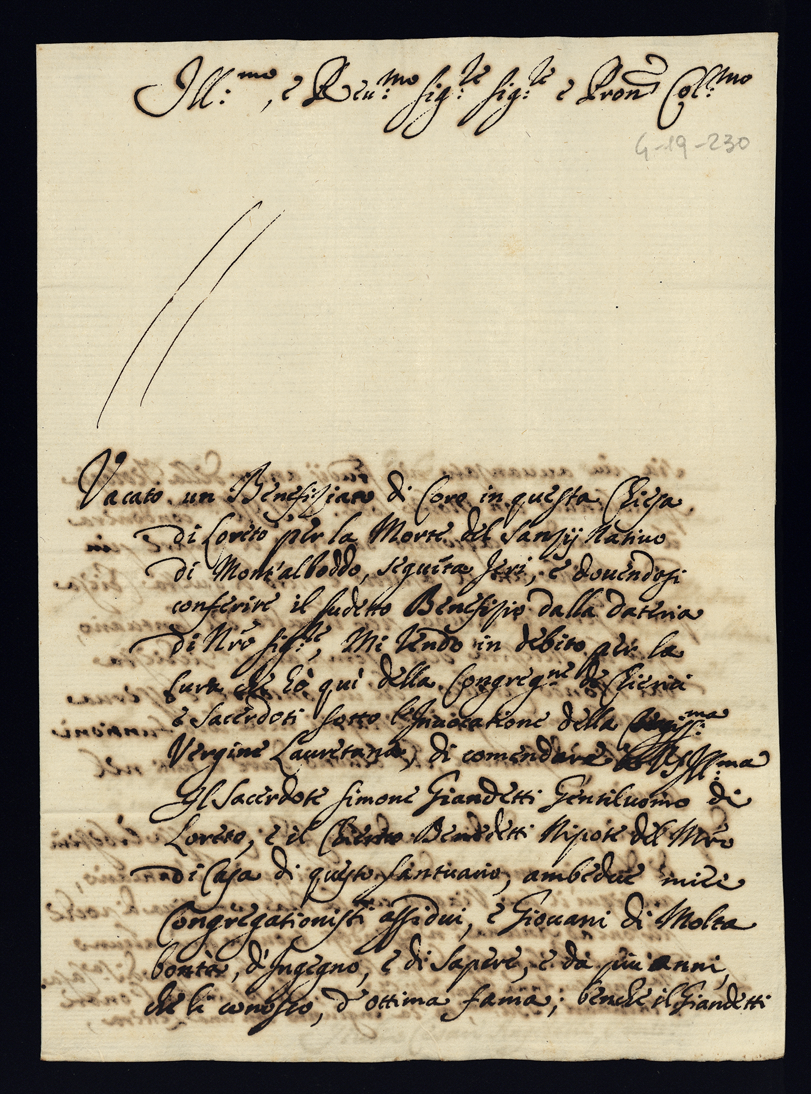 Ill:mo, e Reu:mo Sig:re Sig:re e Pron Col:mo
G-19-230
Vacato un Benefiziato di Coro in questa Chiesa
di Loreto per la Morte del Sanzij Natiuo
di Mont'alboddo, seguita Jeri, e douendosi
conferire il sudetto Benefizio dalla dateria
di Nro Sig:re, Mi rendo in debito per la
Cura che hò quì della Congreg:ne de Chierici
e Sacerdoti sotto l'Inuocatione della
Vergine Lauretana, di comendare V.S. Ill:ma
Il Sacerdote Simone Giandetti Gentiluomo di
Loreto, e il Chierico Benedetti Nipote del Mro
di Casa di questo Santuario, ambedue miei
Congregationisti assidui, e Giouani di Molta
bontà, d'Ingegno, e di Sapere, e da più anni,
che li conosco, d'ottima fama; benche il Giandetti